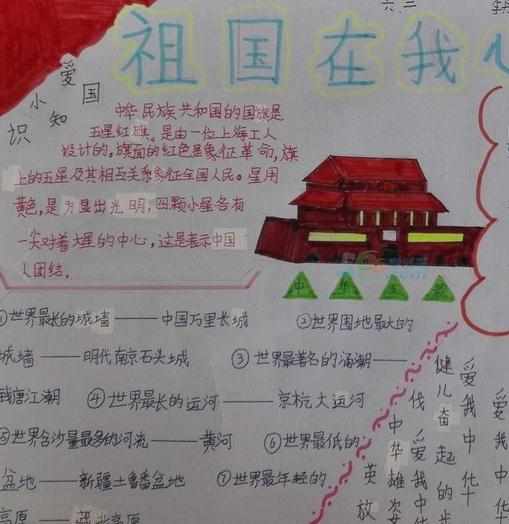 六.三
祖国在我心
爱国
小知识
中华民族共和国的国旗是
五星红旗。是由一位上海工人
设计的,旗面的红色象征革命,旗
上的五星及其相互关系象征全国人民。星用
黄色,是为显出光明,四颗小星各有
一尖对着大星的中心,这是表示中国
人团结。
①世界最长的城墙——中国万里长城
②世界围地最大的
城墙——明代南京石头城
③世界最著名的涌潮——
钱唐江潮
④世界最长的运河——京杭大运河
⑤世界含沙量最多的河流——黄河
⑥世界最低的
盆地——新疆土鲁番盆地
⑦世界最年轻的
高原——
爱我中华
爱我中华
健儿奋起的步
伐
爱我中华
中华雄姿
英放